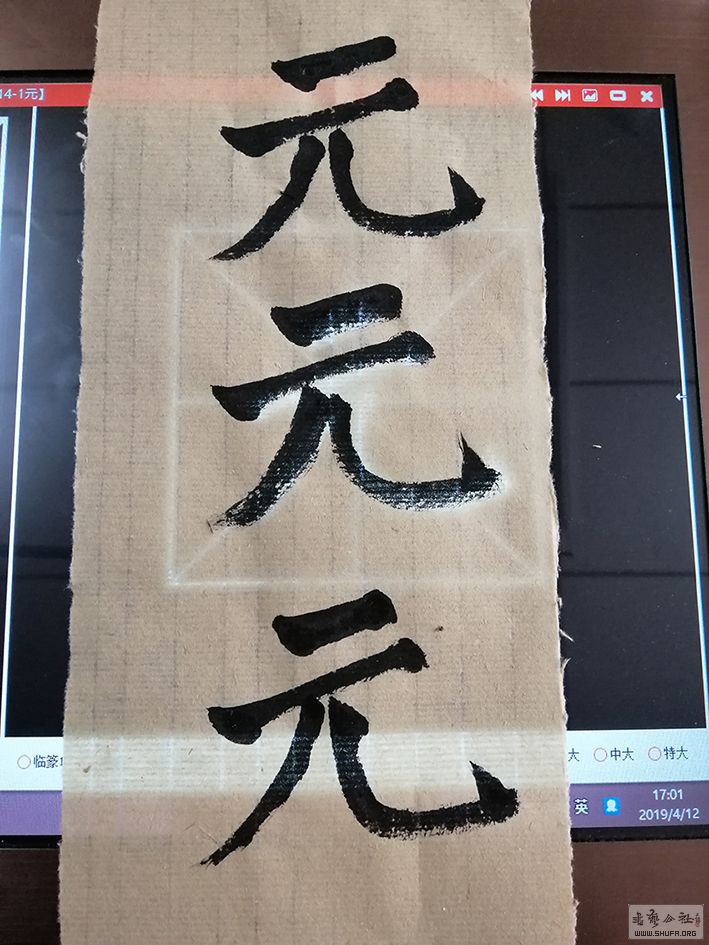 14-1元】
元
元
元
临篆1
大 中大 特大
英
17:01
2019/4/12
WWW.SHUFA.ORG